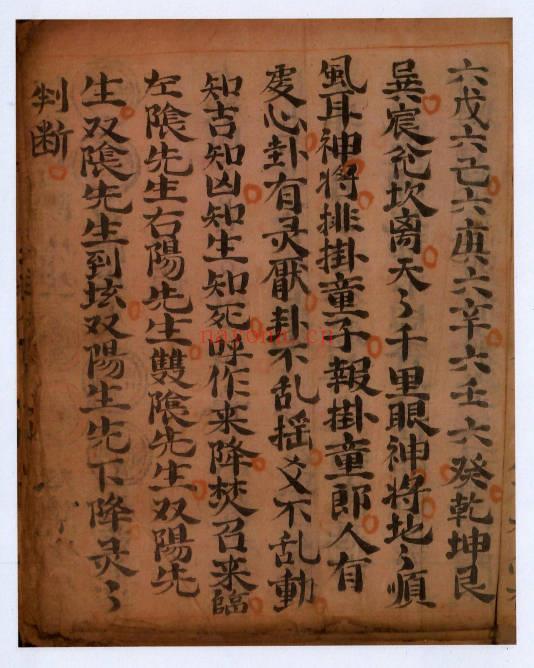 六戊六己六庚六辛六壬六癸乾坤艮
巽宸兊坎离天〻千里眼神将地〻順
風耳神将排掛童子報掛童郎人有
虔心卦有灵厭卦不乱摇爻不乱動
知吉知凶知生知死呼作来降焚召来臨
左陰先生右陽先生雙陰先生双陽先
生双陰先生到坛双陽生先下降灵〻
判断